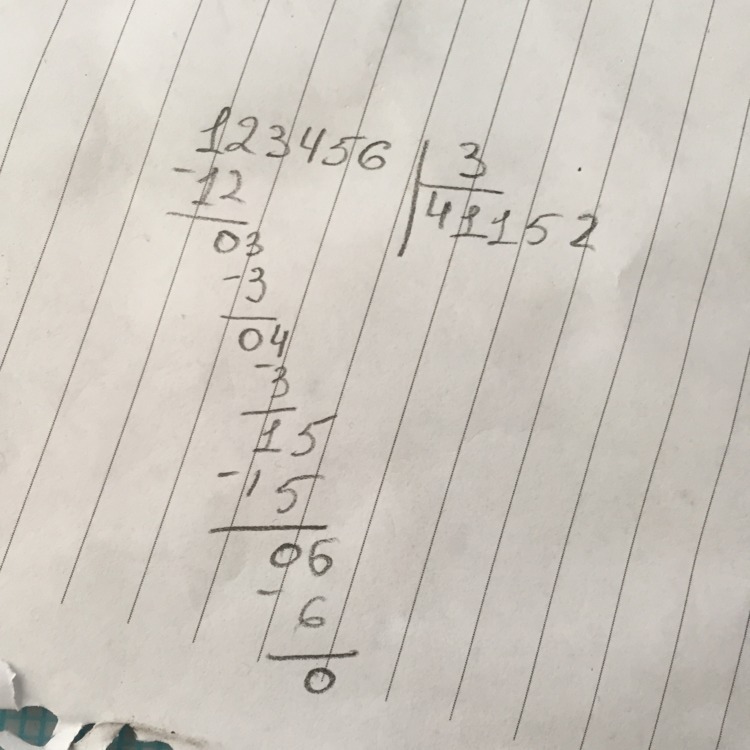 123456 | 3
-12 41152
03
-3
04
-3
15
-15
06
-6
0